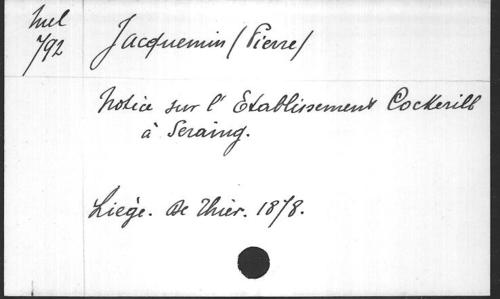 Mel
792
Jacquemin (Pierre)
Notice sur l'Etablissement Cockerill
à Seraing.
Liège. De Thier. 1878.